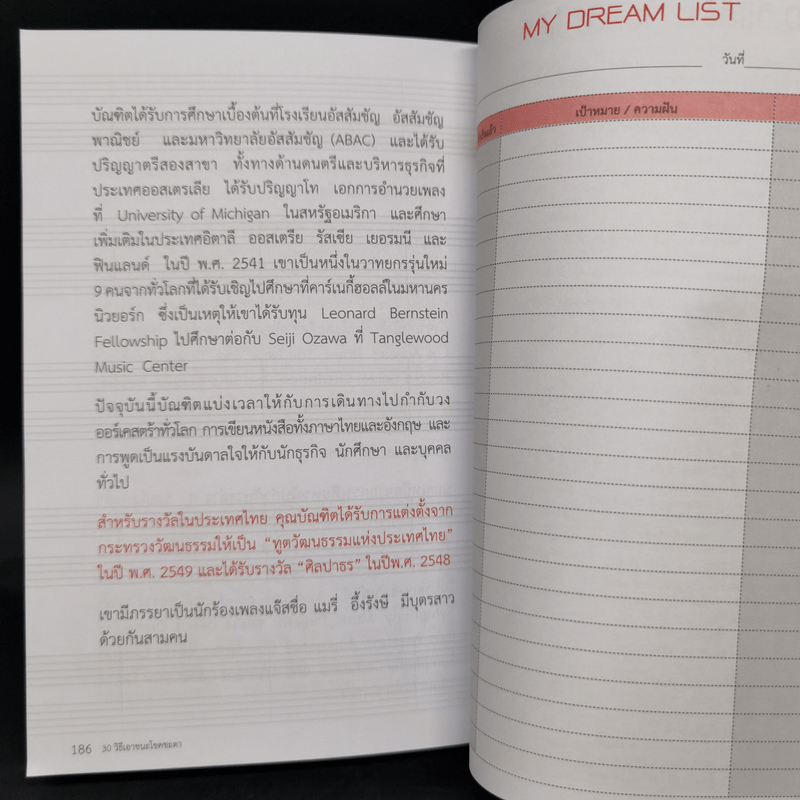 บัณฑิตได้รับการศึกษาเบื้องต้นที่โรงเรียนอัสสัมชัญ อัสสัมชัญ
พาณิชย์ และมหาวิทยาลัยอัสสัมชัญ (ABAC) และได้รับ
ปริญญาตรีสองสาขา ทั้งทางด้านดนตรีและบริหารธุรกิจที่
ประเทศออสเตรเลีย ได้รับปริญญาโท เอกการอำนวยเพลง
ที่ University of Michigan ในสหรัฐอเมริกา และศึกษา
เพิ่มเติมในประเทศอิตาลี ออสเตรีย รัสเซีย เยอรมนี และ
ฟินแลนด์ ในปี พ.ศ. 2541 เขาเป็นหนึ่งในวาทยกรรุ่นใหม่
9 คนจากทั่วโลกที่ได้รับเชิญไปศึกษาที่คาร์เนกี้ฮอลล์ในมหานคร
นิวยอร์ก ซึ่งเป็นเหตุให้เขาได้รับทุน Leonard Bernstein
Fellowship ไปศึกษาต่อกับ Seiji Ozawa ที่ Tanglewood
Music Center
ปัจจุบันนี้บัณฑิตแบ่งเวลาให้กับการเดินทางไปกำกับวง
ออร์เคสตร้าทั่วโลก การเขียนหนังสือทั้งภาษาไทยและอังกฤษ และ
การพูดเป็นแรงบันดาลใจให้กับนักธุรกิจ นักศึกษา และบุคคล
ทั่วไป
สำหรับรางวัลในประเทศไทย คุณบัณฑิตได้รับการแต่งตั้งจาก
กระทรวงวัฒนธรรมให้เป็น “ทูตวัฒนธรรมแห่งประเทศไทย”
ในปี พ.ศ. 2549 และได้รับรางวัล “ศิลปาธร” ในปีพ.ศ. 2548
เขามีภรรยาเป็นนักร้องเพลงแจ๊สชื่อ แมรี่ อึ้งรังษี มีบุตรสาว
ด้วยกันสามคน
186 30 วิธีเอาชนะโชคชะตา
MY DREAM LIST
วันที่
เป้าหมาย / ความฝัน